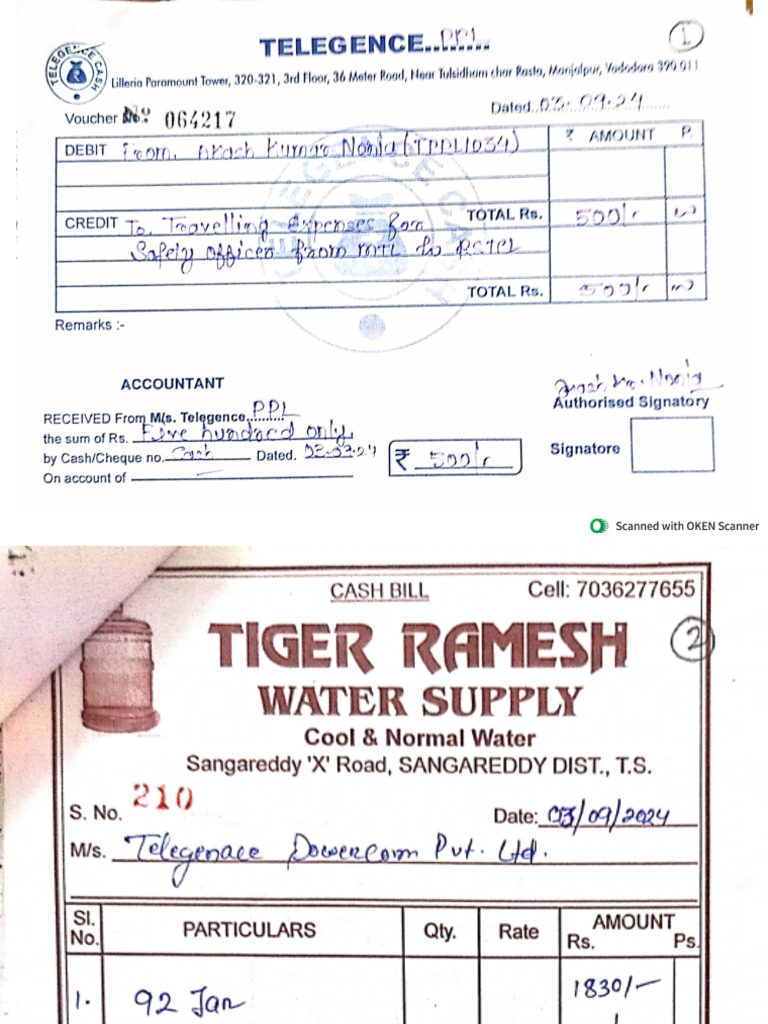 TELEGENCE........ PPL
1
TELEGENCE CASH
Lilleria Paramount Tower, 320-321, 3rd Floor, 36 Meter Road, Near Tulsidham char Rasta, Manjalpur, Vadodara 390 011
Voucher No. 064217
Dated..03-09-24......
DEBIT From, Akash Kumar Nonia (TPPL1034)
₹ AMOUNT P.
CREDIT To, Travelling expenses for
TOTAL Rs. 500/-
Safety officer from MTL to RSTPL
TOTAL Rs. 500/-
Remarks :-
ACCOUNTANT
Authorised Signatory
RECEIVED From M/s. Telegence......... PPL
the sum of Rs. Five hundred only,
by Cash/Cheque no. Cash Dated. 03-09-24
₹ 500/-
Signatore
On account of
Scanned with OKEN Scanner
CASH BILL Cell: 7036277655
TIGER RAMESH
2
WATER SUPPLY
Cool & Normal Water
Sangareddy 'X' Road, SANGAREDDY DIST., T.S.
S. No. 210
Date: 03/09/2024
M/s. Telegenace Powercom Pvt. Ltd.
Sl. No. PARTICULARS Qty. Rate AMOUNT Rs. Ps.
1. 92 Jar 1830/-